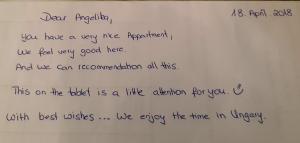 18. April 2018
Dear Angelika,
You have a very nice Appartment,
We feel very good here.
And we can recommendation all this.
This on the tablet is a little attention for you. ☺
With best wishes... We enjoy the time in Ungary.